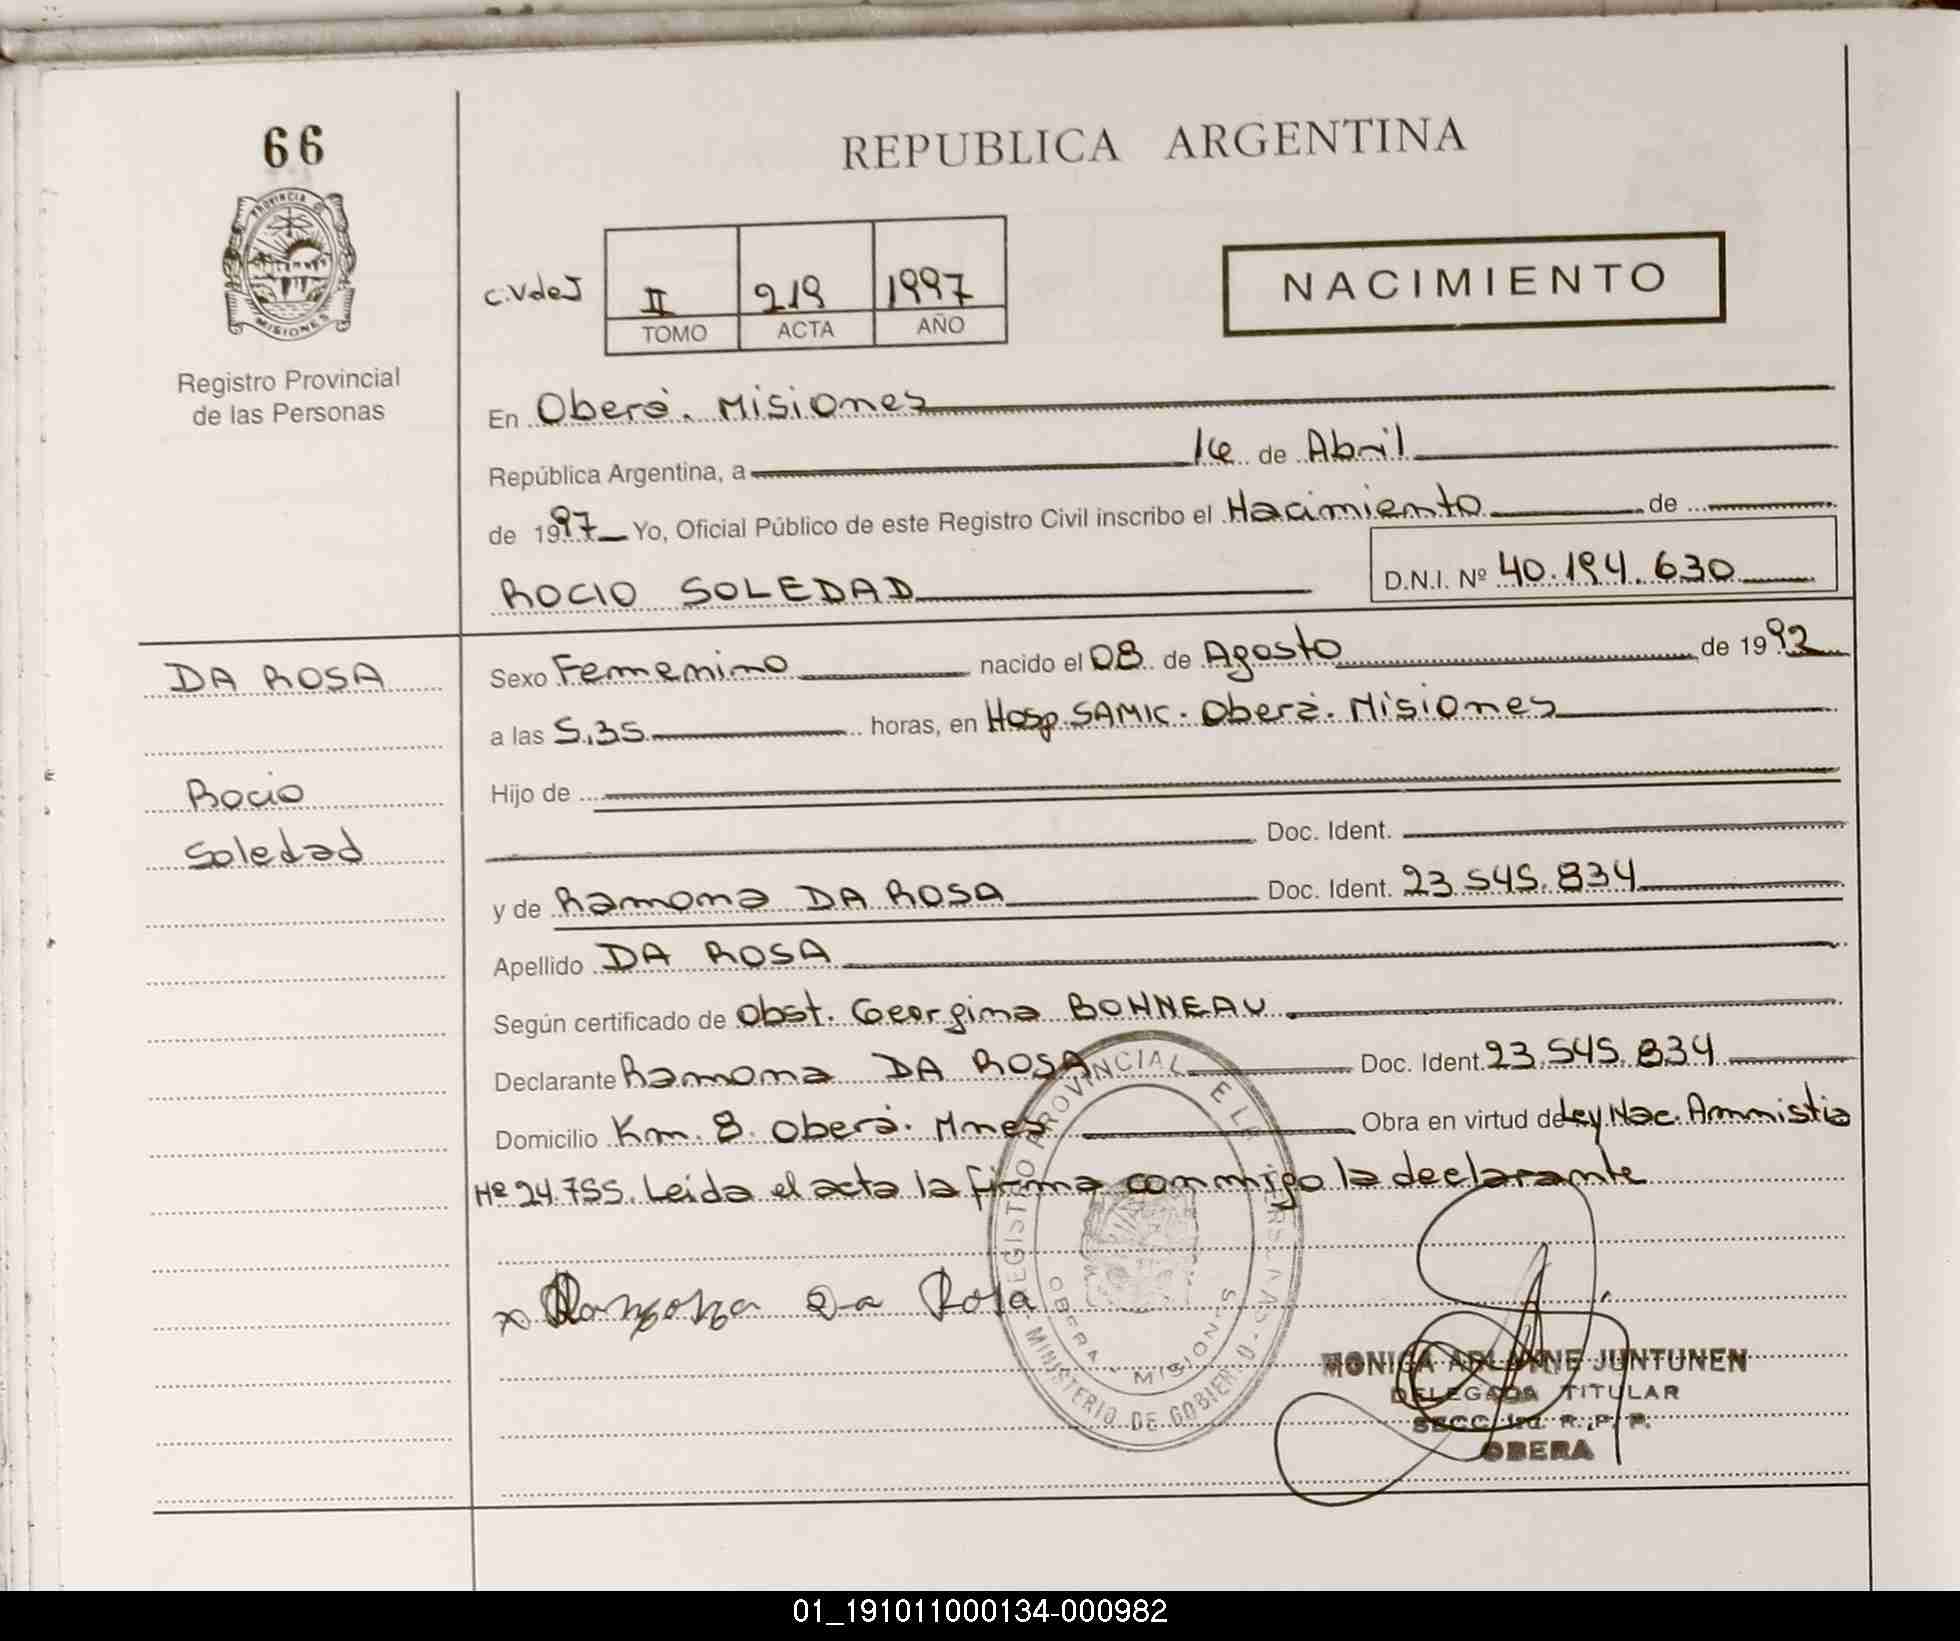 66
REPUBLICA ARGENTINA
PROVINCIA DE
MISIONES
Registro Provincial
de las Personas
C.V de J
II 219 1997
TOMO ACTA AÑO
NACIMIENTO
En Oberá. Misiones
República Argentina, a 16 de Abril
de 1997 Yo, Oficial Público de este Registro Civil inscribo el Nacimiento de
ROCIO SOLEDAD D.N.I. Nº 40.194.630
DA ROSA
Rocio
Soledad
Sexo Femenino nacido el 08 de Agosto de 1992
a las 5,35 horas, en Hosp. SAMIC. Oberá. Misiones
Hijo de
Doc. Ident.
y de Ramona DA ROSA Doc. Ident. 23.545.834
Apellido DA ROSA
Según certificado de Obst. Georgina BONNEAU
Declarante Ramona DA ROSA Doc. Ident. 23.545.834
Domicilio Km. 8. Oberá. Mnes Obra en virtud de Ley Nac. Ammistia
Nº 24.755. Leida el acta la firma conmigo la declarante
x Ramona Da Rosa
REGISTRO PROVINCIAL DE LAS PERSONAS
MINISTERIO DE GOBIERNO
OBERA - MISIONES
MONICA ARIANNE JUNTUNEN
DELEGADA TITULAR
SECC. 1ra. R. P. P.
OBERA
01_191011000134-000982